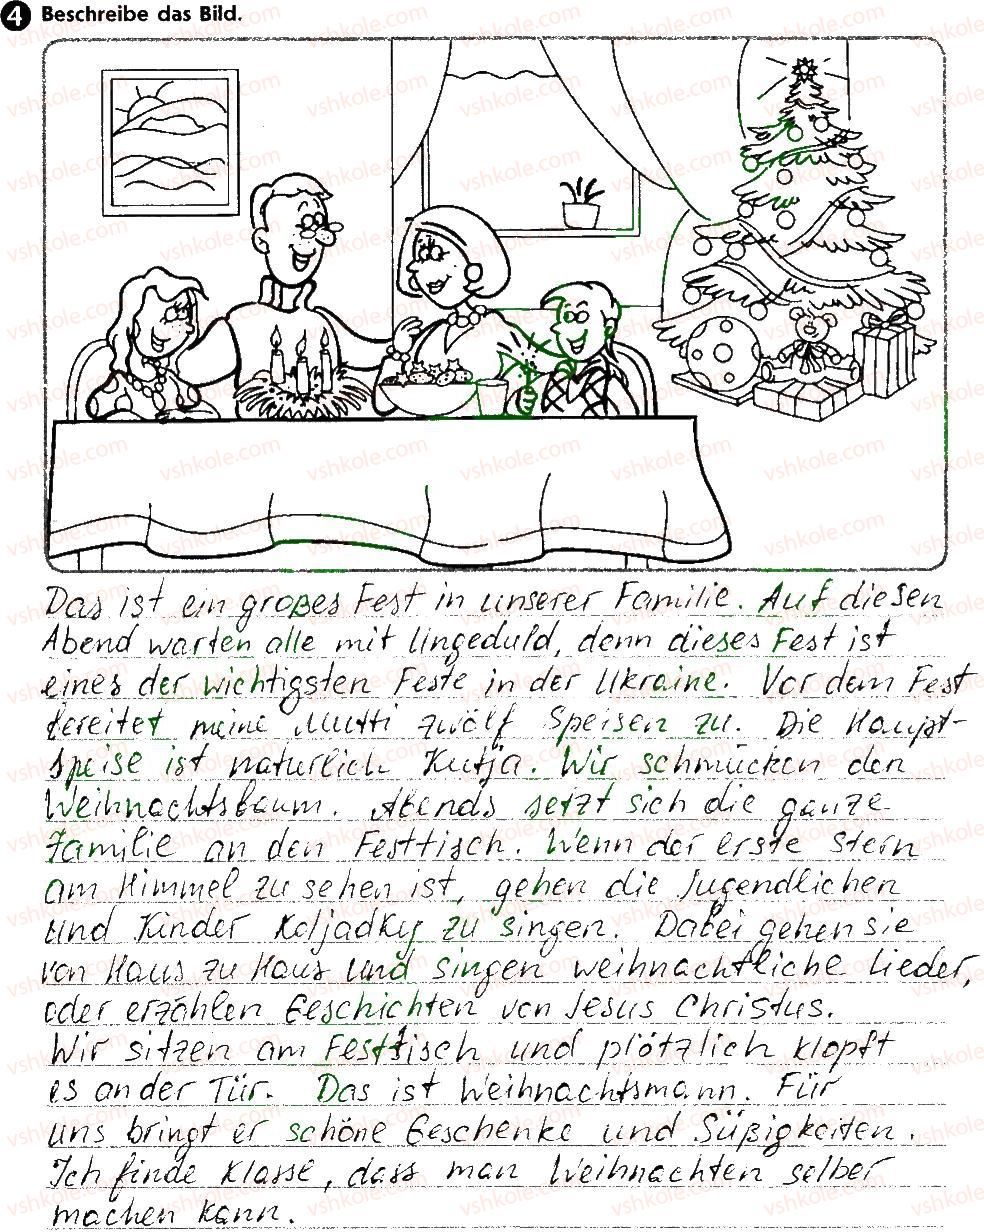 4 Beschreibe das Bild.
Das ist ein großes Fest in unserer Familie. Auf diesen
Abend warten alle mit Ungeduld, denn dieses Fest ist
eines der wichtigsten Feste in der Ukraine. Vor dem Fest
bereitet meine Mutti zwölf Speisen zu. Die Haupt-
speise ist natürlich Kutja. Wir schmücken den
Weihnachtsbaum. Abends setzt sich die ganze
Familie an den Festtisch. Wenn der erste Stern
am Himmel zu sehen ist, gehen die Jugendlichen
und Kinder Koljadky zu singen. Dabei gehen sie
von Haus zu Haus und singen weihnachtliche Lieder,
oder erzählen Geschichten von Jesus Christus.
Wir sitzen am Festtisch und plötzlich klopft
es an der Tür. Das ist Weihnachtsmann. Für
uns bringt er schöne Geschenke und Süßigkeiten.
Ich finde klasse, dass man Weihnachten selber
machen kann.